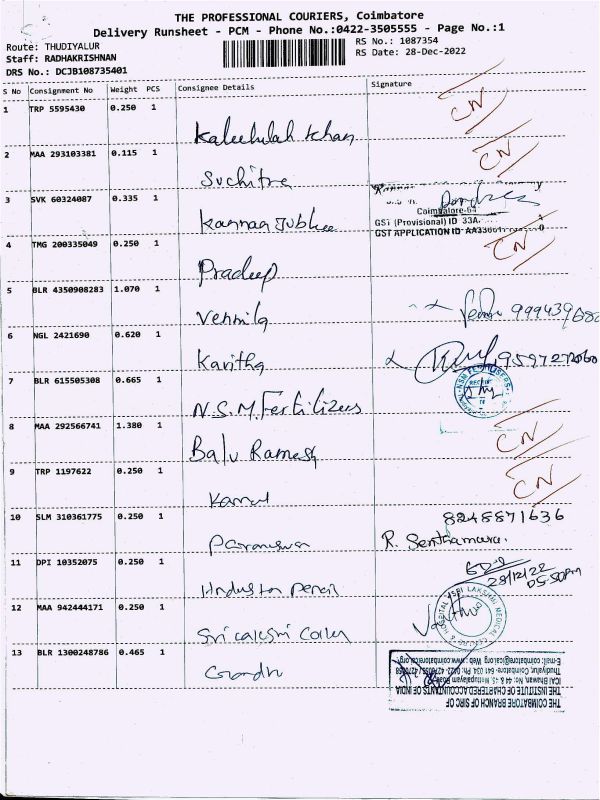 THE PROFESSIONAL COURIERS, Coimbatore
Delivery Runsheet - PCM - Phone No.:0422-3505555 - Page No.:1
Route: THUDIYALUR
RS No.: 1087354
Staff: RADHAKRISHNAN
RS Date: 28-Dec-2022
DRS No.: DCJB108735401
S No Consignment No Weight PCS Consignee Details Signature
1 TRP 5595430 0.250 1 CN
Kaleehulah Khan
2 MAA 293103381 0.115 1 CN
Suchitra
3 SVK 60324087 0.335 1
Coimbatore-64
GST (Provisional) ID 33A
Kannan Jubhee
GST APPLICATION ID AA33061
4 TMG 200335049 0.250 1 CN
Pradeep
5 BLR 4350908283 1.070 1
Vennila
6 NGL 2421690 0.620 1
Kavitha
7 BLR 615505308 0.665 1
N.S.M. Fertilizers
8 MAA 292566741 1.380 1 CN
Balu Ramesh
9 TRP 1197622 0.250 1 CN
Kamal
10 SLM 310361775 0.250 1 8248871636
R. Senthamarai.
11 DPI 10352075 0.250 1
28/12/22
05:50pm
Hindustan Pencil
12 MAA 942444171 0.250 1
SRI LAKSHMI MEDICAL CENTRE & HOSPITAL
13 BLR 1300248786 0.465 1
THE COIMBATORE BRANCH OF SIRC OF
THE INSTITUTE OF CHARTERED ACCOUNTANTS OF INDIA